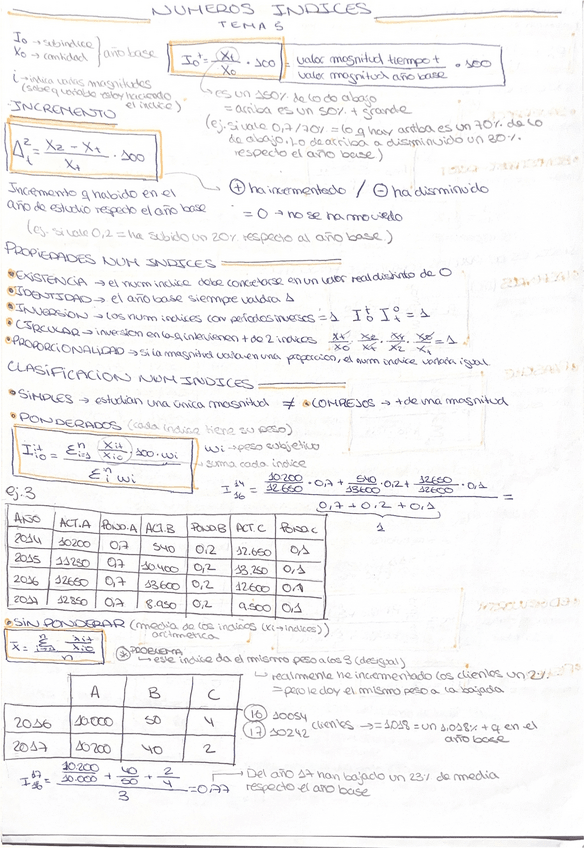 NUMEROS INDICES
TEMA 5
I₀ → subindice
X₀ → cantidad } año base
I₀ᵗ = X₁/X₀ · 100 = valor magnitud tiempo t / valor magnitud año base · 100
i → indica varias magnitudes
→ es un 150% de lo de abajo
= arriba es un 50% + grande
(ej. si vale 0,7/70% = lo q hay arriba es un 70% de lo
de abajo. Lo de arriba a disminuido un 20%
respecto el año base)
INCREMENTO
Δ²₁ = X₂ - X₁ / X₁ · 100
Incremento q habido en el
año de estudio respecto el año base
⊕ ha incrementado / ⊖ ha disminuido
= 0 → no se ha movido
(ej. si vale 0,2 = ha subido un 20% respecto al año base)
PROPIEDADES NUM INDICES
• EXISTENCIA → el num indice debe concretarse en un valor real distinto de 0
• IDENTIDAD → el año base siempre valdra 1
• INVERSION → los num indices con periodos inversos = 1 I₀ᵗ Iₜ⁰ = 1
• CIRCULAR → inversion en la q intervienen + de 2 indices = 1
• PROPORCIONALIDAD → si la magnitud varia en una proporcion, el num indice variará igual
CLASIFICACION NUM INDICES
• SIMPLES → estudian una única magnitud ≠ • COMPLEJOS → + de una magnitud
• PONDERADOS (cada indice tiene su peso)
wi → peso subjetivo
→ suma cada indice
I 14/16 = 10200/12650 · 0,7 + 540/13600 · 0,2 + 12650/12600 · 0,1 =
0,7 + 0,2 + 0,1
1
ej. 3
AÑO ACT.A POND.A ACT.B POND.B ACT.C POND.C
2014 10200 0,7 540 0,2 12.650 0,1
2015 11250 0,7 10400 0,2 13.250 0,1
2016 12650 0,7 13600 0,2 12600 0,1
2017 12850 0,7 8.950 0,2 9.500 0,1
• SIN PONDERAR (media de los indices (xi → indices))
aritmetica
PROBLEMA
→ este indice da el mismo peso a los 3 (desigual)
→ realmente he incrementado los clientes un 2%
= pero le doy el mismo peso a la bajada
A B C
2016 10.000 50 4
2017 10200 40 2
16 10054
17 10242 clientes → = 1.018 = un 1.018% + q en el
año base
I 17/16 = 10.200/10.000 + 40/50 + 2/4 / 3 = 0,77
→ Del año 17 han bajado un 23% de media
respecto el año base